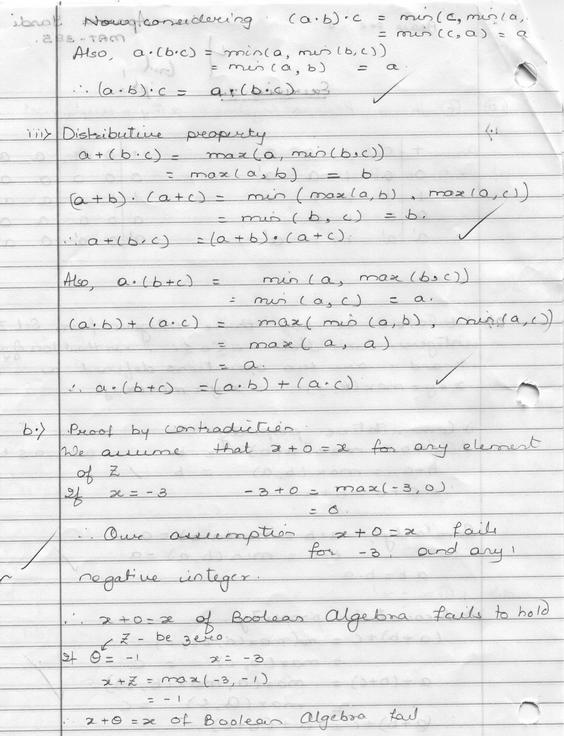 Now, considering (a·b)·c = min(c, min(a,
= min(c, a) = a
Also, a·(b·c) = min(a, min(b,c))
= min(a, b) = a.
∴ (a·b)·c = a·(b·c)
iii> Distributive property
a+(b·c) = max(a, min(b,c))
= max(a, b) = b
(a+b)·(a+c) = min (max(a,b), max(a,c))
= min (b, c) = b.
∴ a+(b·c) = (a+b)·(a+c).
Also, a·(b+c) = min(a, max(b,c))
= min(a,c) = a.
(a·b)+(a·c) = max( min(a,b), min(a,c))
= max( a, a)
= a.
∴ a·(b+c) = (a·b)+(a·c)
b·> Proof by contradiction.
We assume that x+0=x for any element
of Z
If x = -3 -3+0 = max(-3,0)
= 0.
∴ Our assumption x+0=x fails
for -3 and any
negative integer.
∴ x+0=x of Boolean Algebra fails to hold
Z - be zero
If θ = -1 x = -3
x+Z = max(-3,-1)
= -1
∴ x+θ=x of Boolean Algebra fail